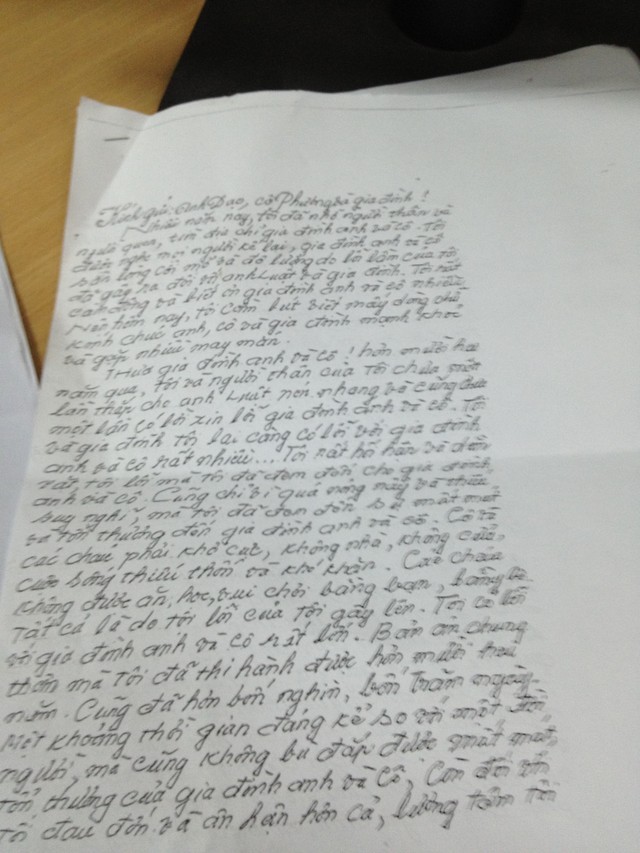 Kính gửi: Anh Đạo, cô Phường và gia đình!
Nhiều năm nay, tôi đã nhờ người thân và
người quen, tìm địa chỉ gia đình anh và cô. Tôi
được nghe mọi người kể lại, gia đình anh và cô
sẵn lòng chỉ mở và độ lượng do lỗi lầm của tôi
đã gây ra đối với anh Luật và gia đình. Tôi rất
cảm động và biết ơn gia đình anh và cô nhiều
Nên hôm nay, tôi cầm bút viết mấy dòng chữ
Kính chúc anh, cô và gia đình mạnh khoẻ
và gặp nhiều may mắn.
Thưa gia đình anh và cô! hơn mười hai
năm qua, tôi và người thân của tôi chưa một
lần thắp cho anh Luật nén nhang và cũng chưa
một lần có lời xin lỗi gia đình anh và cô. Tôi
và gia đình tôi lại càng có lỗi với gia đình
anh và cô rất nhiều... Tôi rất hối hận về điều
rất tội lỗi mà tôi đã đem đến cho gia đình
anh và cô. Cũng chỉ vì quá nóng nảy và thiếu
suy nghĩ, mà tôi đã đem đến sự mất mát
và tổn thương đến gia đình anh và cô. Cô và
các cháu phải khổ cực, không nhà, không cửa,
cuộc sống thiếu thốn và khó khăn. Các cháu
không được ăn, học, vui chơi bằng bạn, bằng bè
Tất cả là do tội lỗi của tôi gây lên. Tôi có lỗi
với gia đình anh và cô rất lớn. Bản án chung
thân mà tôi đã thi hành được hơn mười hai
năm. Cũng đã hơn bốn nghìn, bốn trăm ngày
Một khoảng thời gian đáng kể so với một đời
người, mà cũng không bù đắp được mất mát
tổn thương của gia đình anh và cô. Còn đối với
tôi đau đớn và ân hận hơn cả, lương tâm tôi